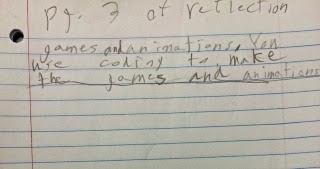 pg. 3 of reflection
games and animations. You
use coding to make
the games and animations